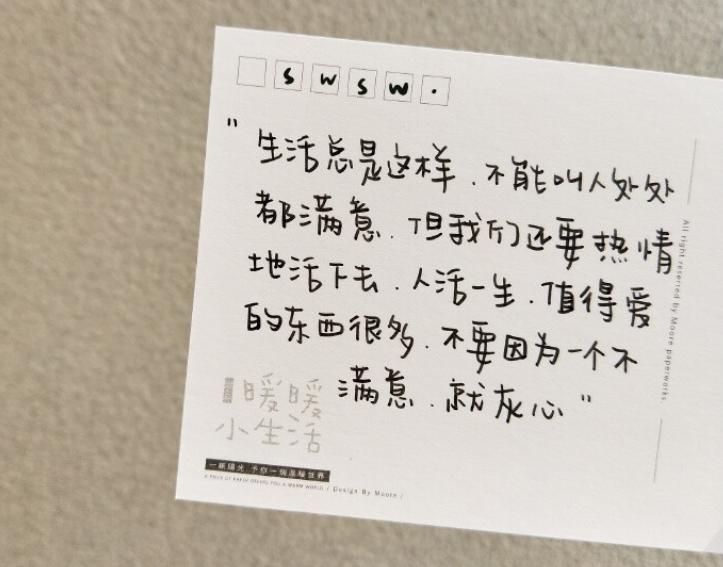 swsw.
"生活总是这样.不能叫人处处
都满意.但我们还要热情
地活下去.人活一生.值得爱
的东西很多.不要因为一个不
满意.就灰心"
All right reserved by Moore paperworks.
暖暖
小生活
一紙陽光 予你一個溫暖世界
A PIECE OF PAPER BRINGS YOU A WARM WORLD / Design By Moore /